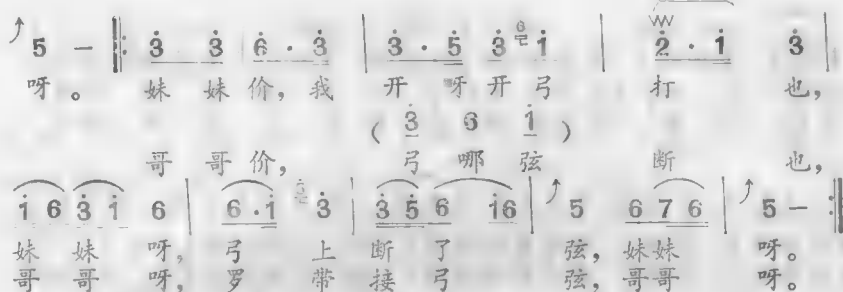 5 — 3 3 6 · 3 3 · 5 3 6 1 2 · 1 3
呀。 妹 妹 价, 我 开 呀 开 弓 打 也,
( 3 6 1 )
哥 哥 价, 弓 哪 弦 断 也,
1 6 3 1 6 6 · 1 3 3 5 6 1 6 5 6 7 6 5 —
妹 妹 呀, 弓 上 断 了 弦, 妹妹 呀。
哥 哥 呀, 罗 带 接 弓 弦, 哥哥 呀。